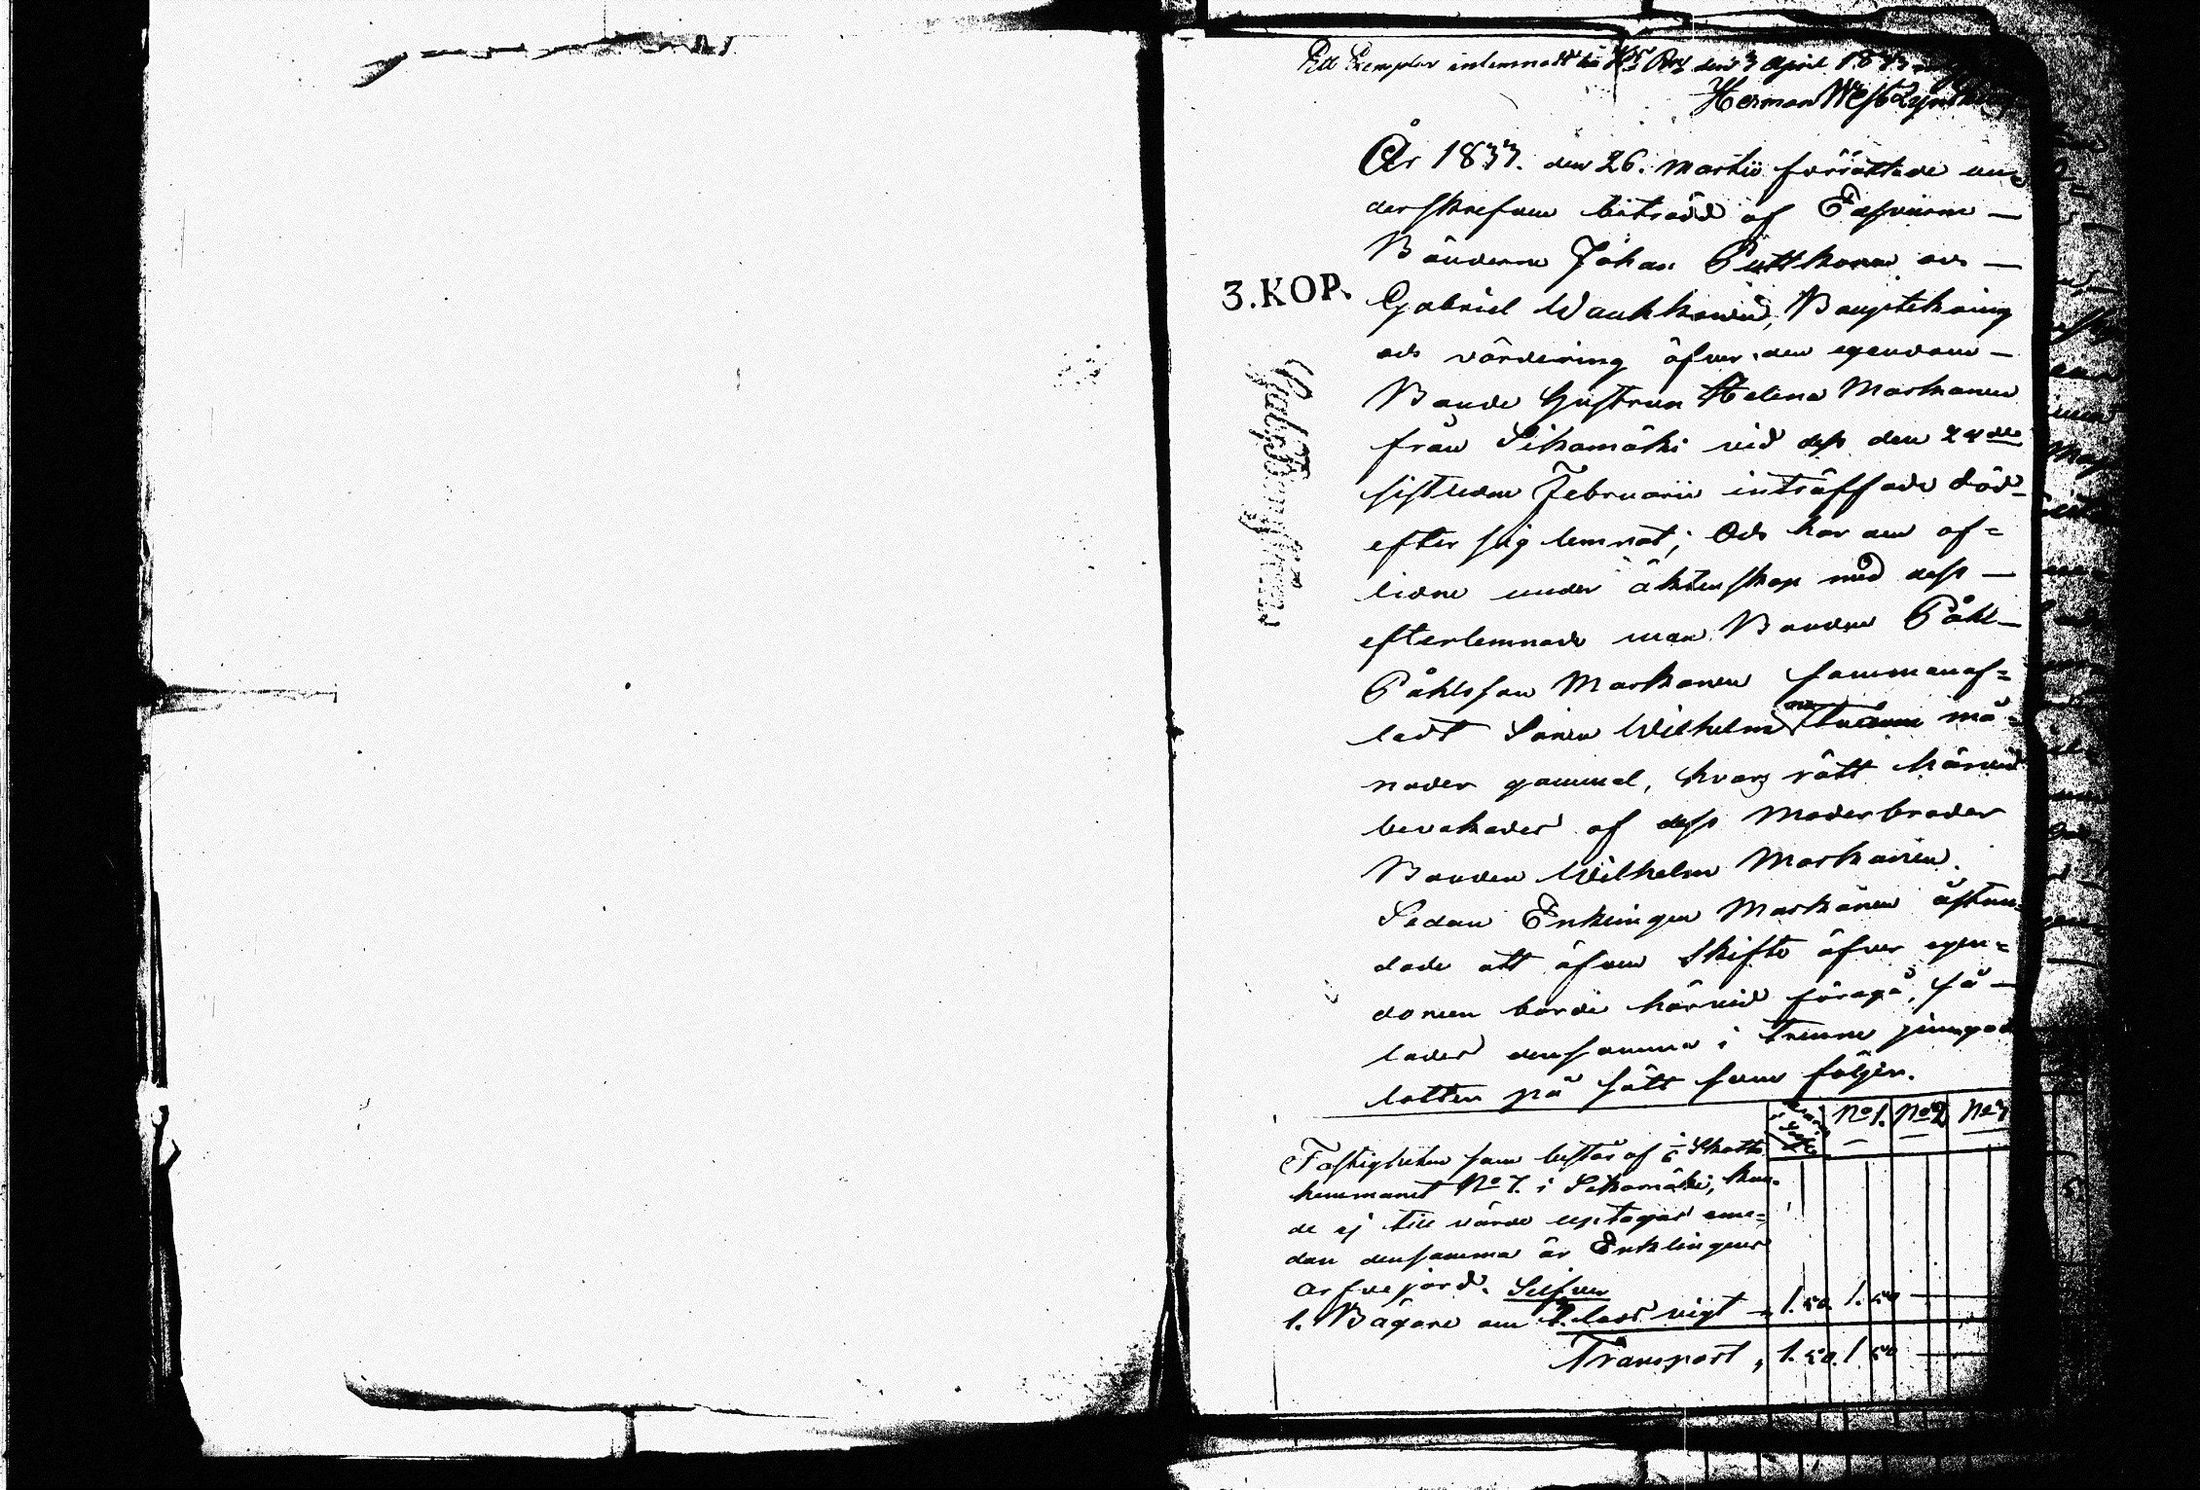 Ett Exemplar inlemnadt den 3 April 1833
Herman West
År 1833. den 26. Martii förrättade un=
derskrefven biträdd af
Bönderne Johan Puttkonen och —
3.KOP.
Gabriel Wauhkonen, Bouptekning
och värdering öfver den egendom —
Bonde Hustrun Helena Markanen
från Sikamäki vid dess den
sistledne Februarii inträffade död —
efter sig lemnat; Och har den af=
lidne under äktenskap med dess —
efterlemnade man Bonden Påhl —
Påhlsson Markanen samman af=
ladt Sonen Wilhelm må=
nader gammal, hvars rätt härvid
bevakades af dess Moderbroder
Bonden Wilhelm Markanen.
Sedan Enklingen Markanen åstun=
dade att äfven Skifte öfver egen=
domen borde härvid föregå, få —
lades densamma i trenne
lotter på sätt som följer.
No 1. No 2 No 3
Fastigheten som består af Skatte
hemmanet No 7. i Sikamäki, kun=
de ej till värde uptagas eme=
dan densamma är Enklingens
arfvejord. Silfver
1. Bägare om lod vigt 1. 50. 1. 50
Transport, 1. 50. 1 50